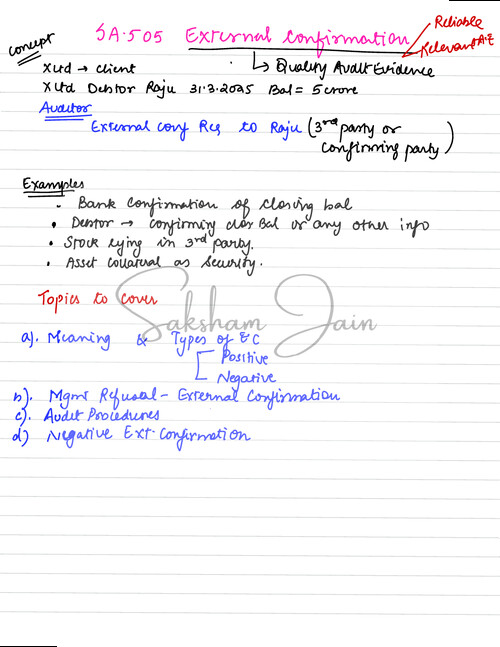 SA.505 External Confirmation
Reliable
Relevant A.E
Concept
↳ Quality Audit Evidence
X Ltd → client
X Ltd Debtor Raju 31.3.2025 Bal = 5 crore
Auditor
External Conf Req to Raju (3rd party or confirming party)
Examples
• Bank Confirmation of closing bal
• Debtor → confirming clos Bal or any other info
• Stock lying in 3rd party.
• Asset Collateral as Security.
Topics to cover
Saksham Jain
a). Meaning & Types of EC
Positive
Negative
b). Mgmt Refusal - External Confirmation
c). Audit Procedures
d) Negative Ext. Confirmation